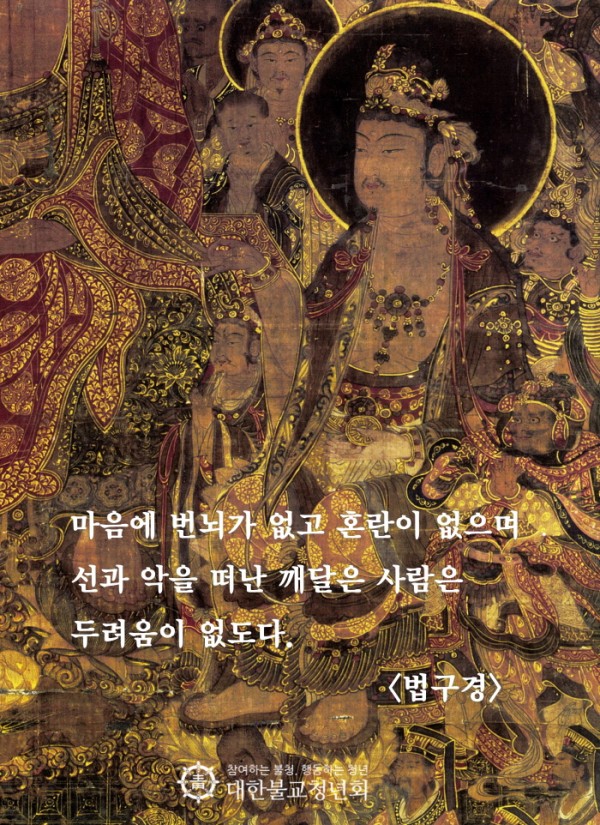 마음에 번뇌가 없고 혼란이 없으며
선과 악을 떠난 깨달은 사람은
두려움이 없도다.
<법구경>
참여하는 불청, 행동하는 청년
靑
대한불교청년회